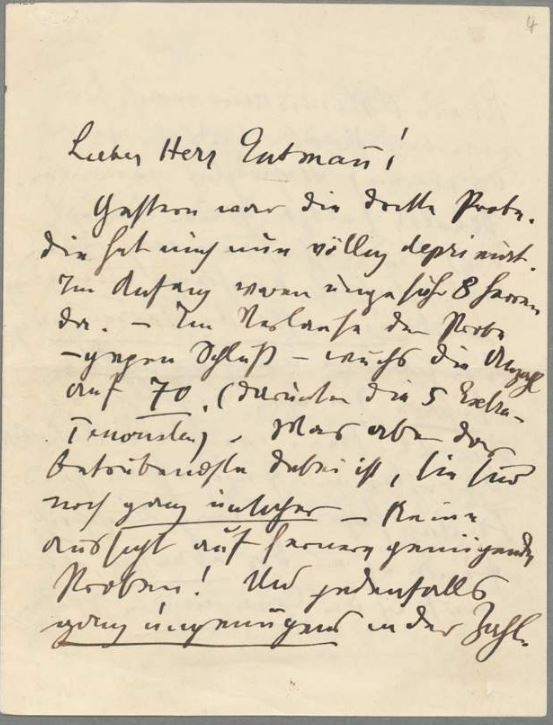 4
Lieber Herr Gutmann!
Gestern war die dritte Probe.
Die hat mich nun völlig deprimirt.
Im Anfang waren ungefähr 8 Herren
da. – Im Verlaufe der Probe
– gegen Schluß – wuchs die Anzahl
auf 70. (darunter die 5 Extra-
Tenoristen). Was aber das
betrübendste dabei ist, sie sind
noch ganz unsicher – Keine
Aussicht auf fernere genügende
Proben! Und jedenfalls
ganz ungenügend in der Zahl.